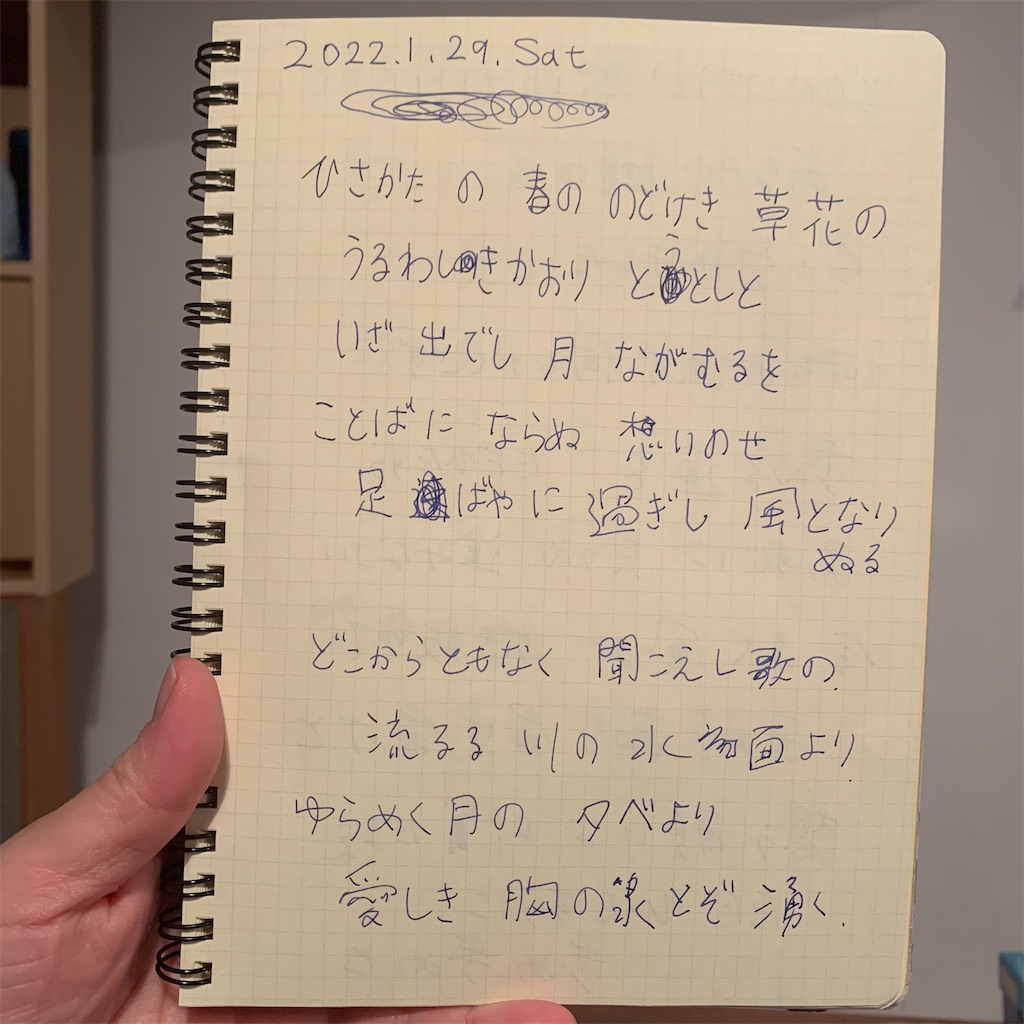 2022.1.29.Sat
ひさかた の 春の のどけき 草花の
うるわしきかおり とうとしと
いざ 出でし 月 ながむるを
ことばに ならぬ 想いのせ
足ばやに 過ぎし 風となり
ぬる
どこからともなく 聞こえし歌の.
流るる 川の 水面より.
ゆらめく月の 夕べより
愛しき 胸の泉とぞ 湧く.